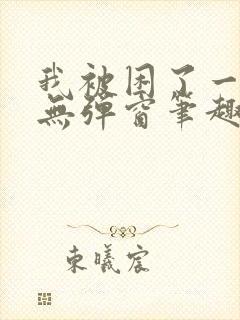 我被困了一
無彈窗筆趣
東曦宸